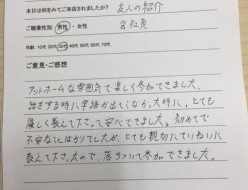 本日は何をみてご来店されましたか? 友人の紹介
ご職業性別: 男性・女性 会社員
年齢: 10代 20代 30代 40代 50代 60代 70代
ご意見・ご感想
アットホームな雰囲気で楽しく参加できました。
話をする時に単語が出てこなかった時に、とても
優しく教えて下さって安心できました。初めてで
不安なことばかりでしたが、とても親切にていねいに
教えて下さったので、落ちついて参加できました。